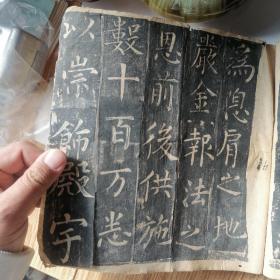 為息肩之地
嚴金報法之
恩前後供施
數十百万悉
以崇飾殿宇